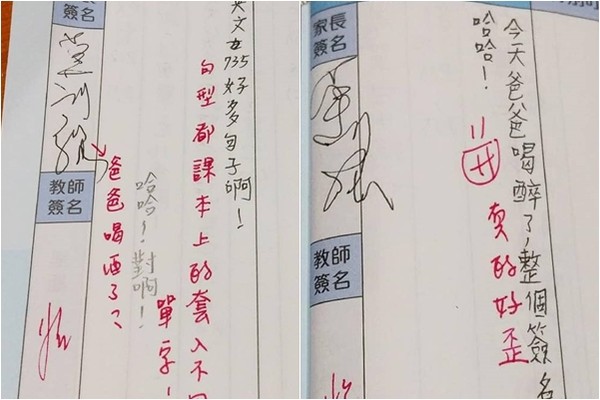 英文 735好多句子啊!
句型都課本上的套入不
單字!
哈哈~對啊!
爸爸喝酒了?
簽名
教師
簽名
今天爸爸喝醉了,整個簽名
哈哈!
真的好歪
家長
簽名
教師
簽名